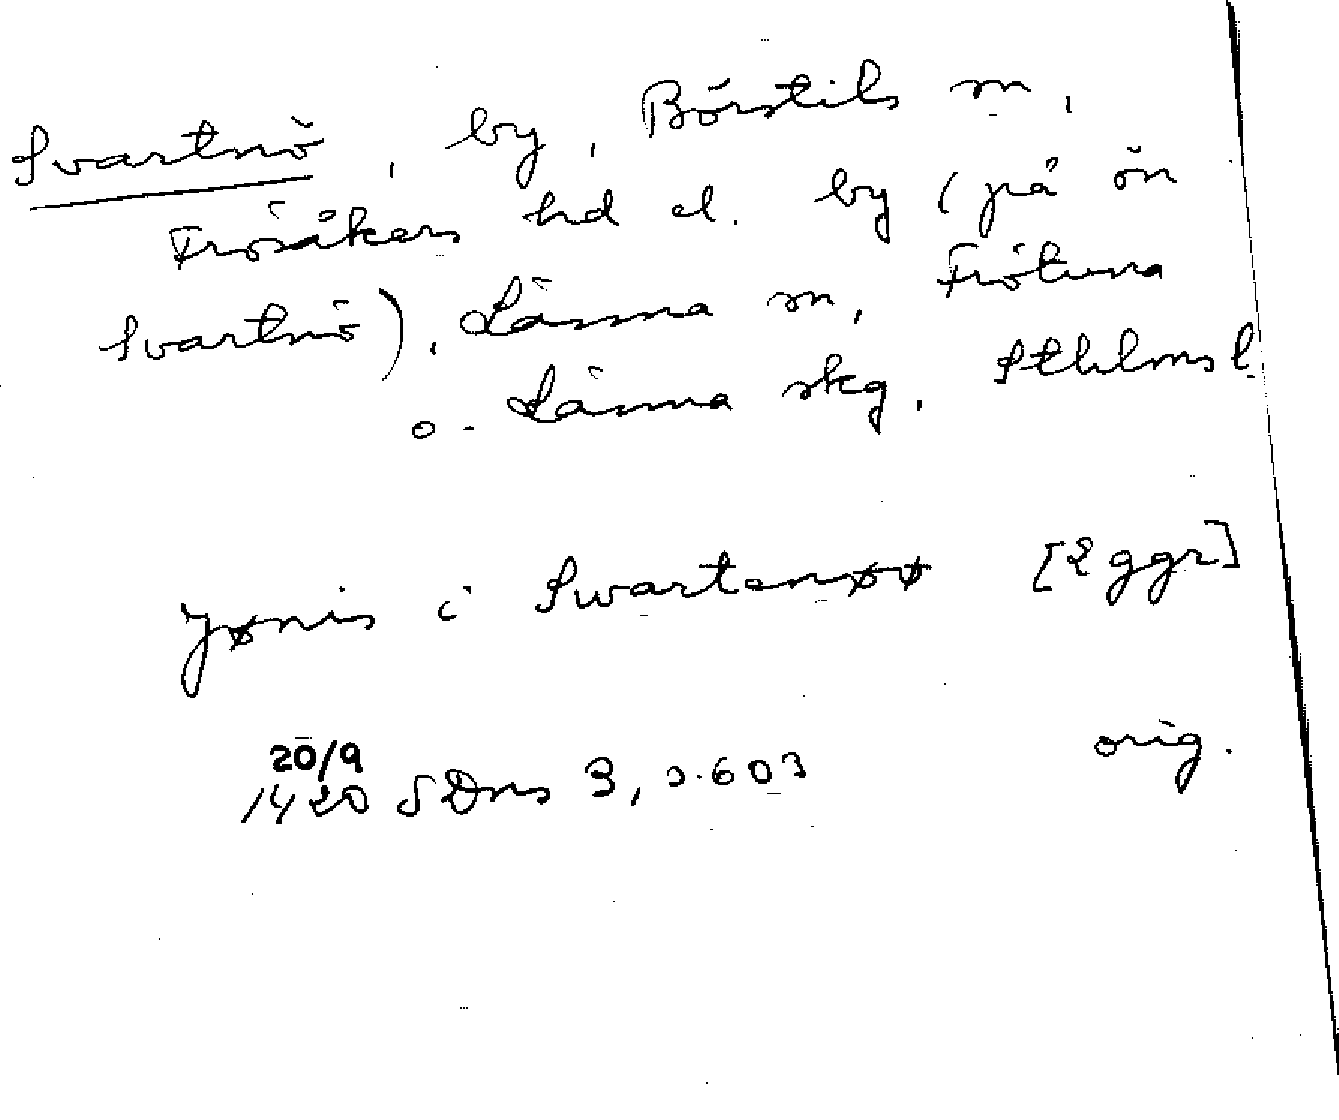 Svartnö, by, Börstils sn,
Frösåkers hd el. by (på ön
Svartnö), Länna sn, Frötuna
o. Länna skg, Sthlms l.
Jønis i Swartenøø [2 ggr]
20/9
1420 SDns 3, s. 603 orig.